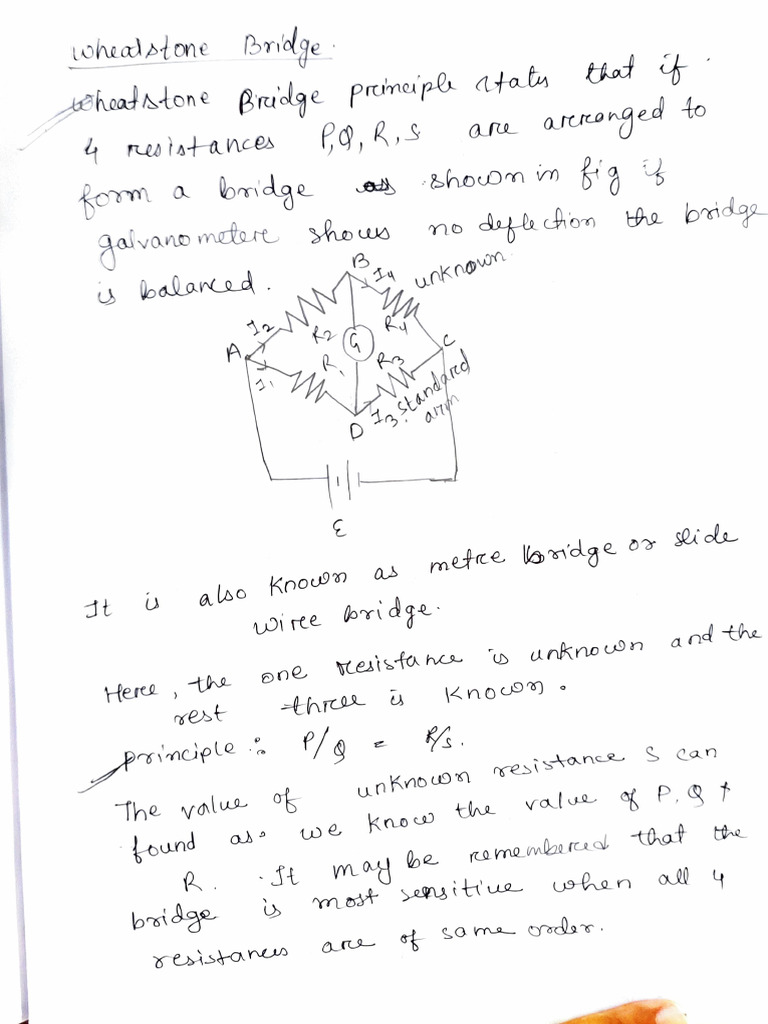 Wheatstone Bridge.
Wheatstone Bridge principle states that if
4 resistances P,Q,R,S are arrranged to
form a bridge as shown in fig if
galvanometere shows no deflection the bridge
is balanced.
B
I4
unknown
I2
R2
R4
A
G
C
I1
R1
R3
I3
standared
arm
D
E
It is also known as metre bridge or slide
wire bridge.
Here, the one resistance is unknown and the
rest three is known.
principle : P/Q = R/S.
The value of unknown resistance S can
found as we know the value of P,Q &
R. It may be remembered that the
bridge is most sensitive when all 4
resistances are of same order.